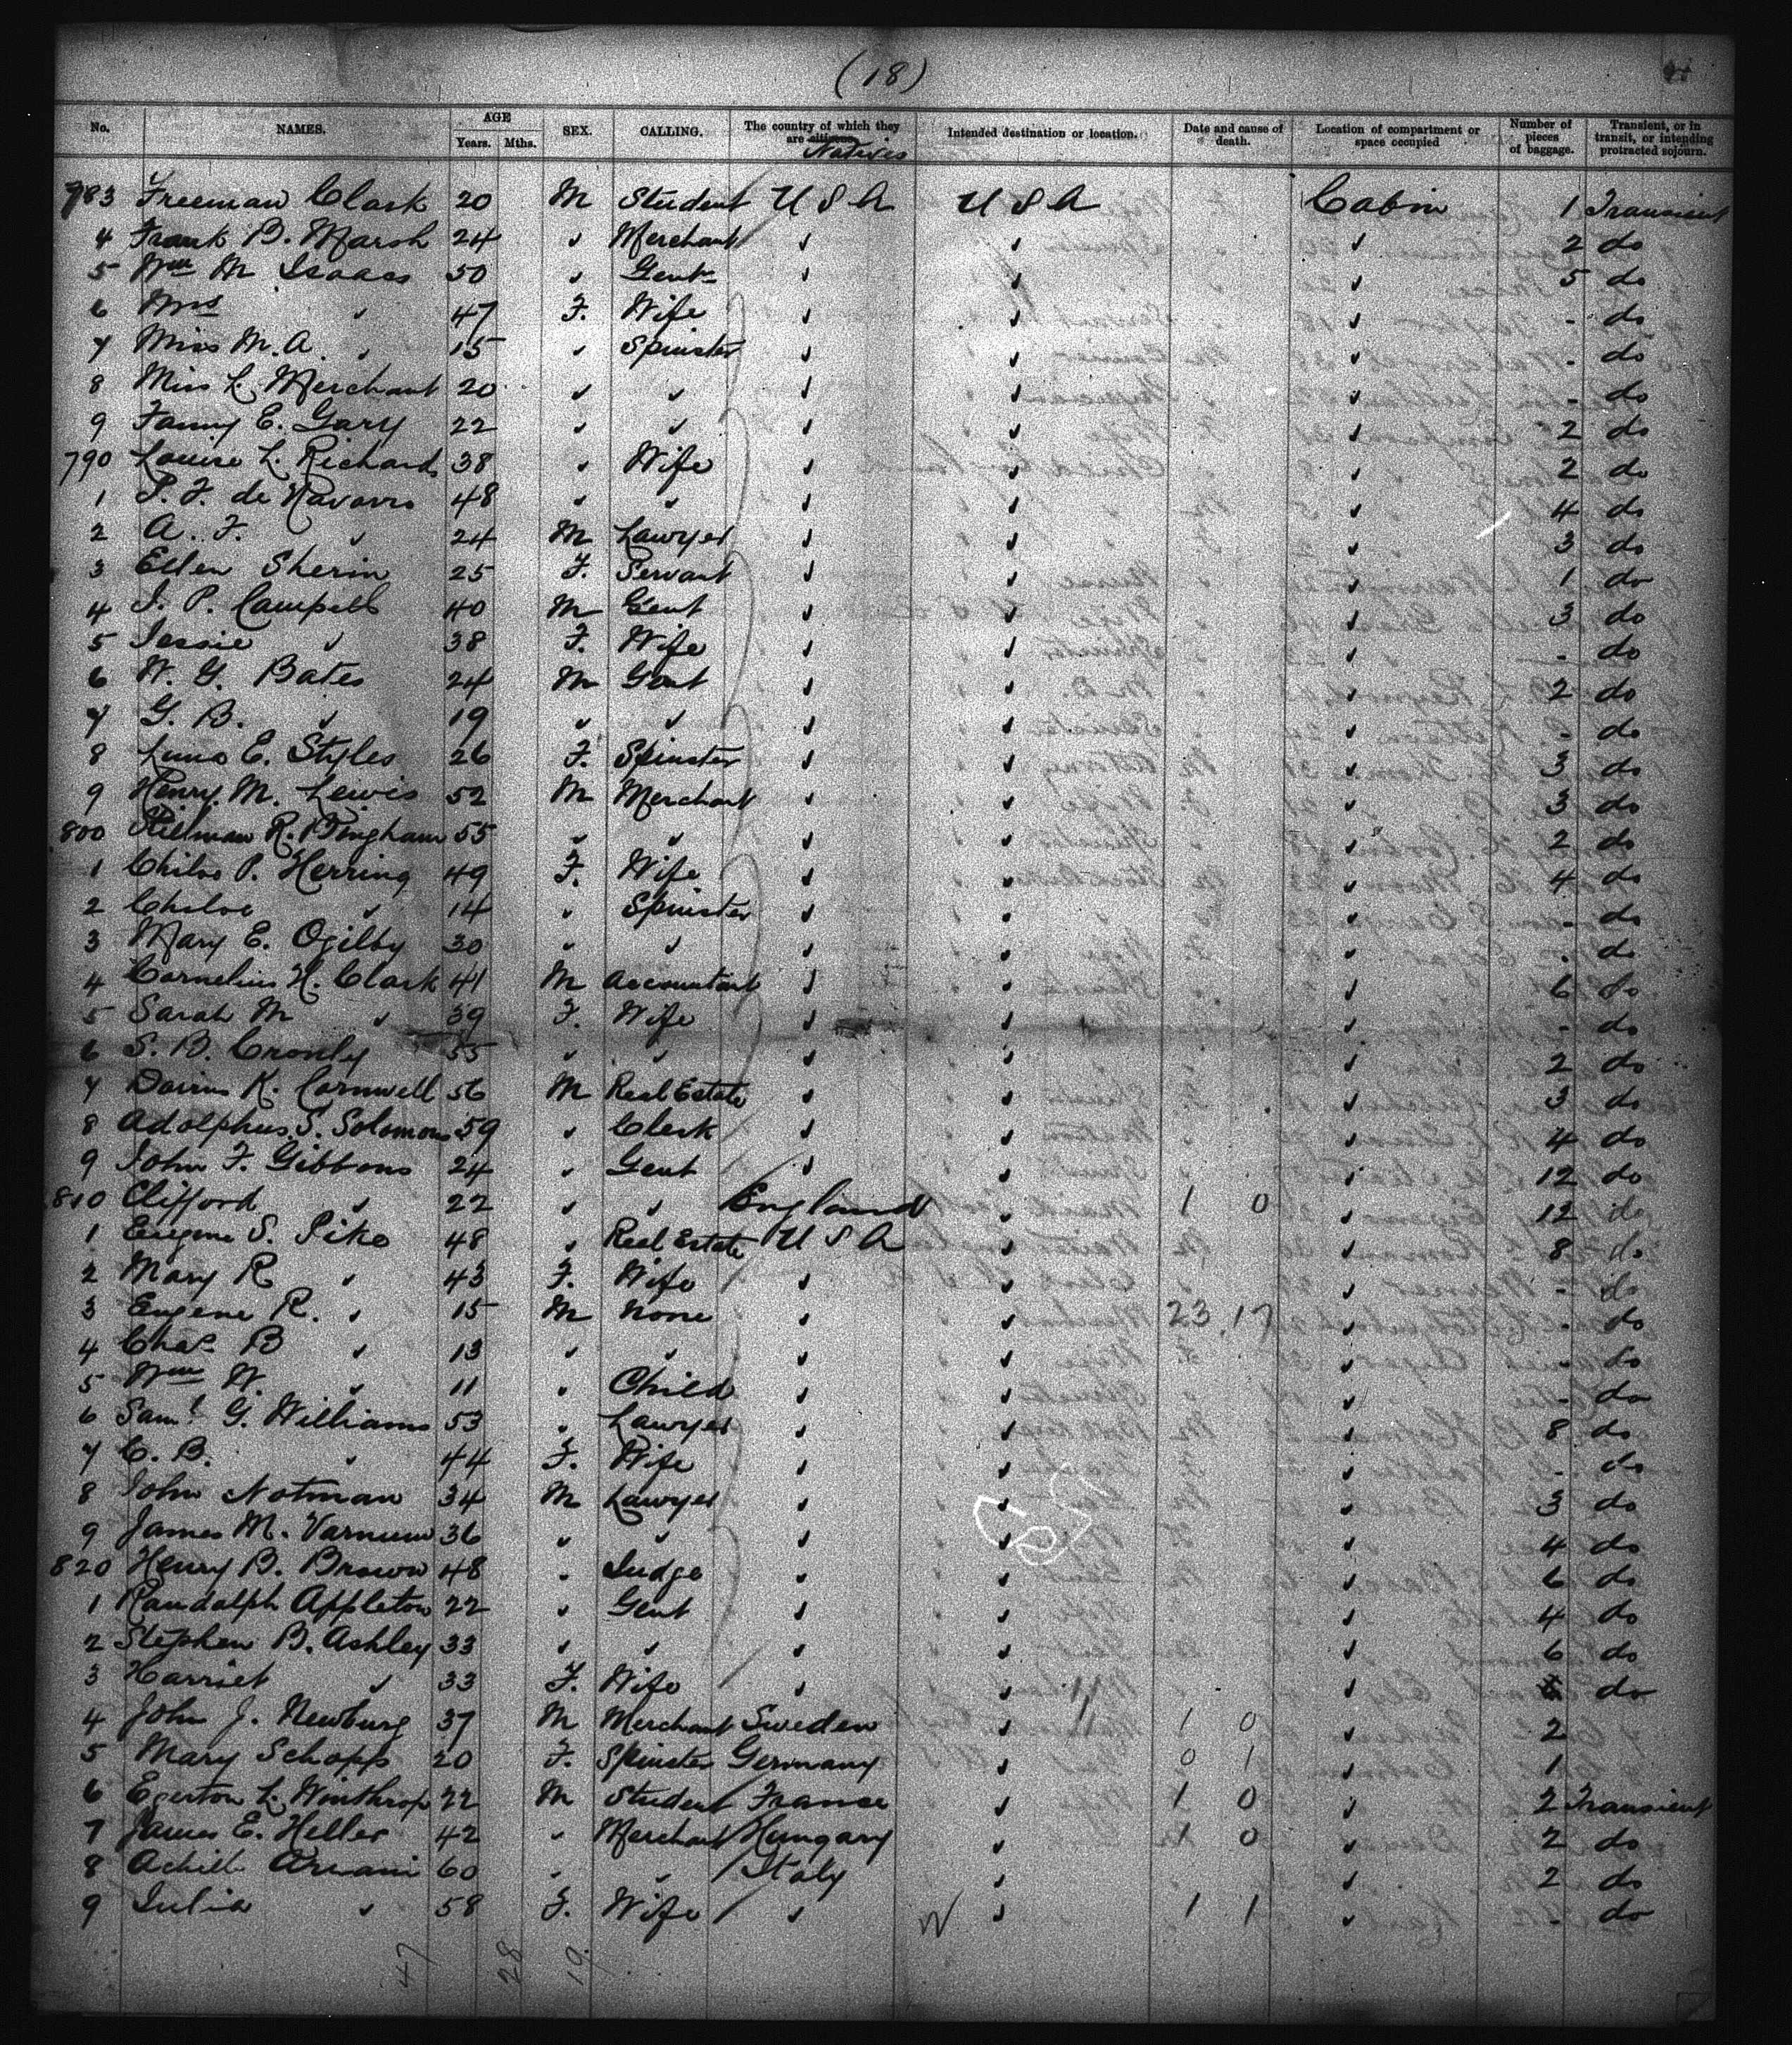 (18)
No. NAMES. AGE Years. Mths. SEX. CALLING. The country of which they are citizens. Natives Intended destination or location. Date and cause of death. Location of compartment or space occupied Number of pieces of baggage. Transient, or in transit, or intending protracted sojourn.
783 Freeman Clark 20 M Student U S A U S A Cabin 1 Transient
4 Frank B. Marsh 24 " Merchant " " " 2 do
5 Wm M Isaacs 50 " Gent " " " 5 do
6 Mrs " 47 F. Wife " " " - do
7 Miss M. A. " 15 " Spinster " " " - do
8 Miss L. Merchant 20 " " " " " - do
9 Fanny E. Gary 22 " " " " " 2 do
790 Louise L. Richards 38 " Wife " " " 2 do
1 P. F. de Navarro 48 " " " " " 4 do
2 A. F. " 24 M Lawyer " " " 3 do
3 Ellen Sherin 25 F. Servant " " " 1 do
4 J. P. Campbell 40 M Gent " " " 3 do
5 Jessie " 38 F. Wife " " " - do
6 W. G. Bates 24 M Gent " " " 2 do
7 G. B. " 19 " " " " " - do
8 E. Styles 26 F. Spinster " " " 3 do
9 Henry M. Lewis 52 M Merchant " " " 3 do
800 R. Bingham 55 " " " " " 2 do
1 P. Herring 49 F. Wife " " " 4 do
2 " 14 " Spinster " " " - do
3 Mary E. Ogilby 30 " " " " " - do
4 Cornelius H. Clark 41 M Accountant " " " 6 do
5 Sarah M " 39 F. Wife " " " - do
6 S. B. Cronly 55 " " " " " 2 do
7 Darius K. Cornwell 56 M Real Estate " " " 3 do
8 Adolphus S. Solomons 59 " Clerk " " " 4 do
9 John F. Gibbons 24 " Gent " " " 12 do
810 Clifford " 22 " " England " 1 0 " 12 do
1 Eugene S. Pike 48 " Real Estate U S A " " 8 do
2 Mary R " 43 F. Wife " " " - do
3 Eugene R. " 15 M None " " 23 17 " - do
4 Chas B " 13 " " " " " - do
5 Wm W. " 11 " Child " " " - do
6 Saml G. Williams 53 " Lawyer " " " 8 do
7 C. B. " 44 F. Wife " " " - do
8 John Notman 34 M Lawyer " " " 3 do
9 James M. Varnum 36 " " " " " 4 do
820 Henry B. Brown 48 " Judge " " " 6 do
1 Randolph Appleton 22 " Gent " " " 4 do
2 Stephen B. Ashley 33 " " " " " 6 do
3 Harriet " 33 F. Wife " " " do
4 John J. Newburg 37 M Merchant Sweden " 1 0 " 2
5 Mary Schopp 20 F. Spinster Germany " 0 1 " 1
6 Egerton L. Winthrop 22 M Student France " 1 0 " 2 Transient
7 James E. Heller 42 " Merchant Hungary " 1 0 " 2 do
8 Achille 60 " " Italy " " 2 do
9 Julia " 58 F. Wife " " 1 1 " - do
47 28 19